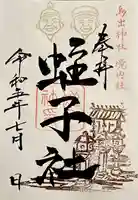 馬出神社 境内社
奉拝
蛭子社
令和五年七月 日